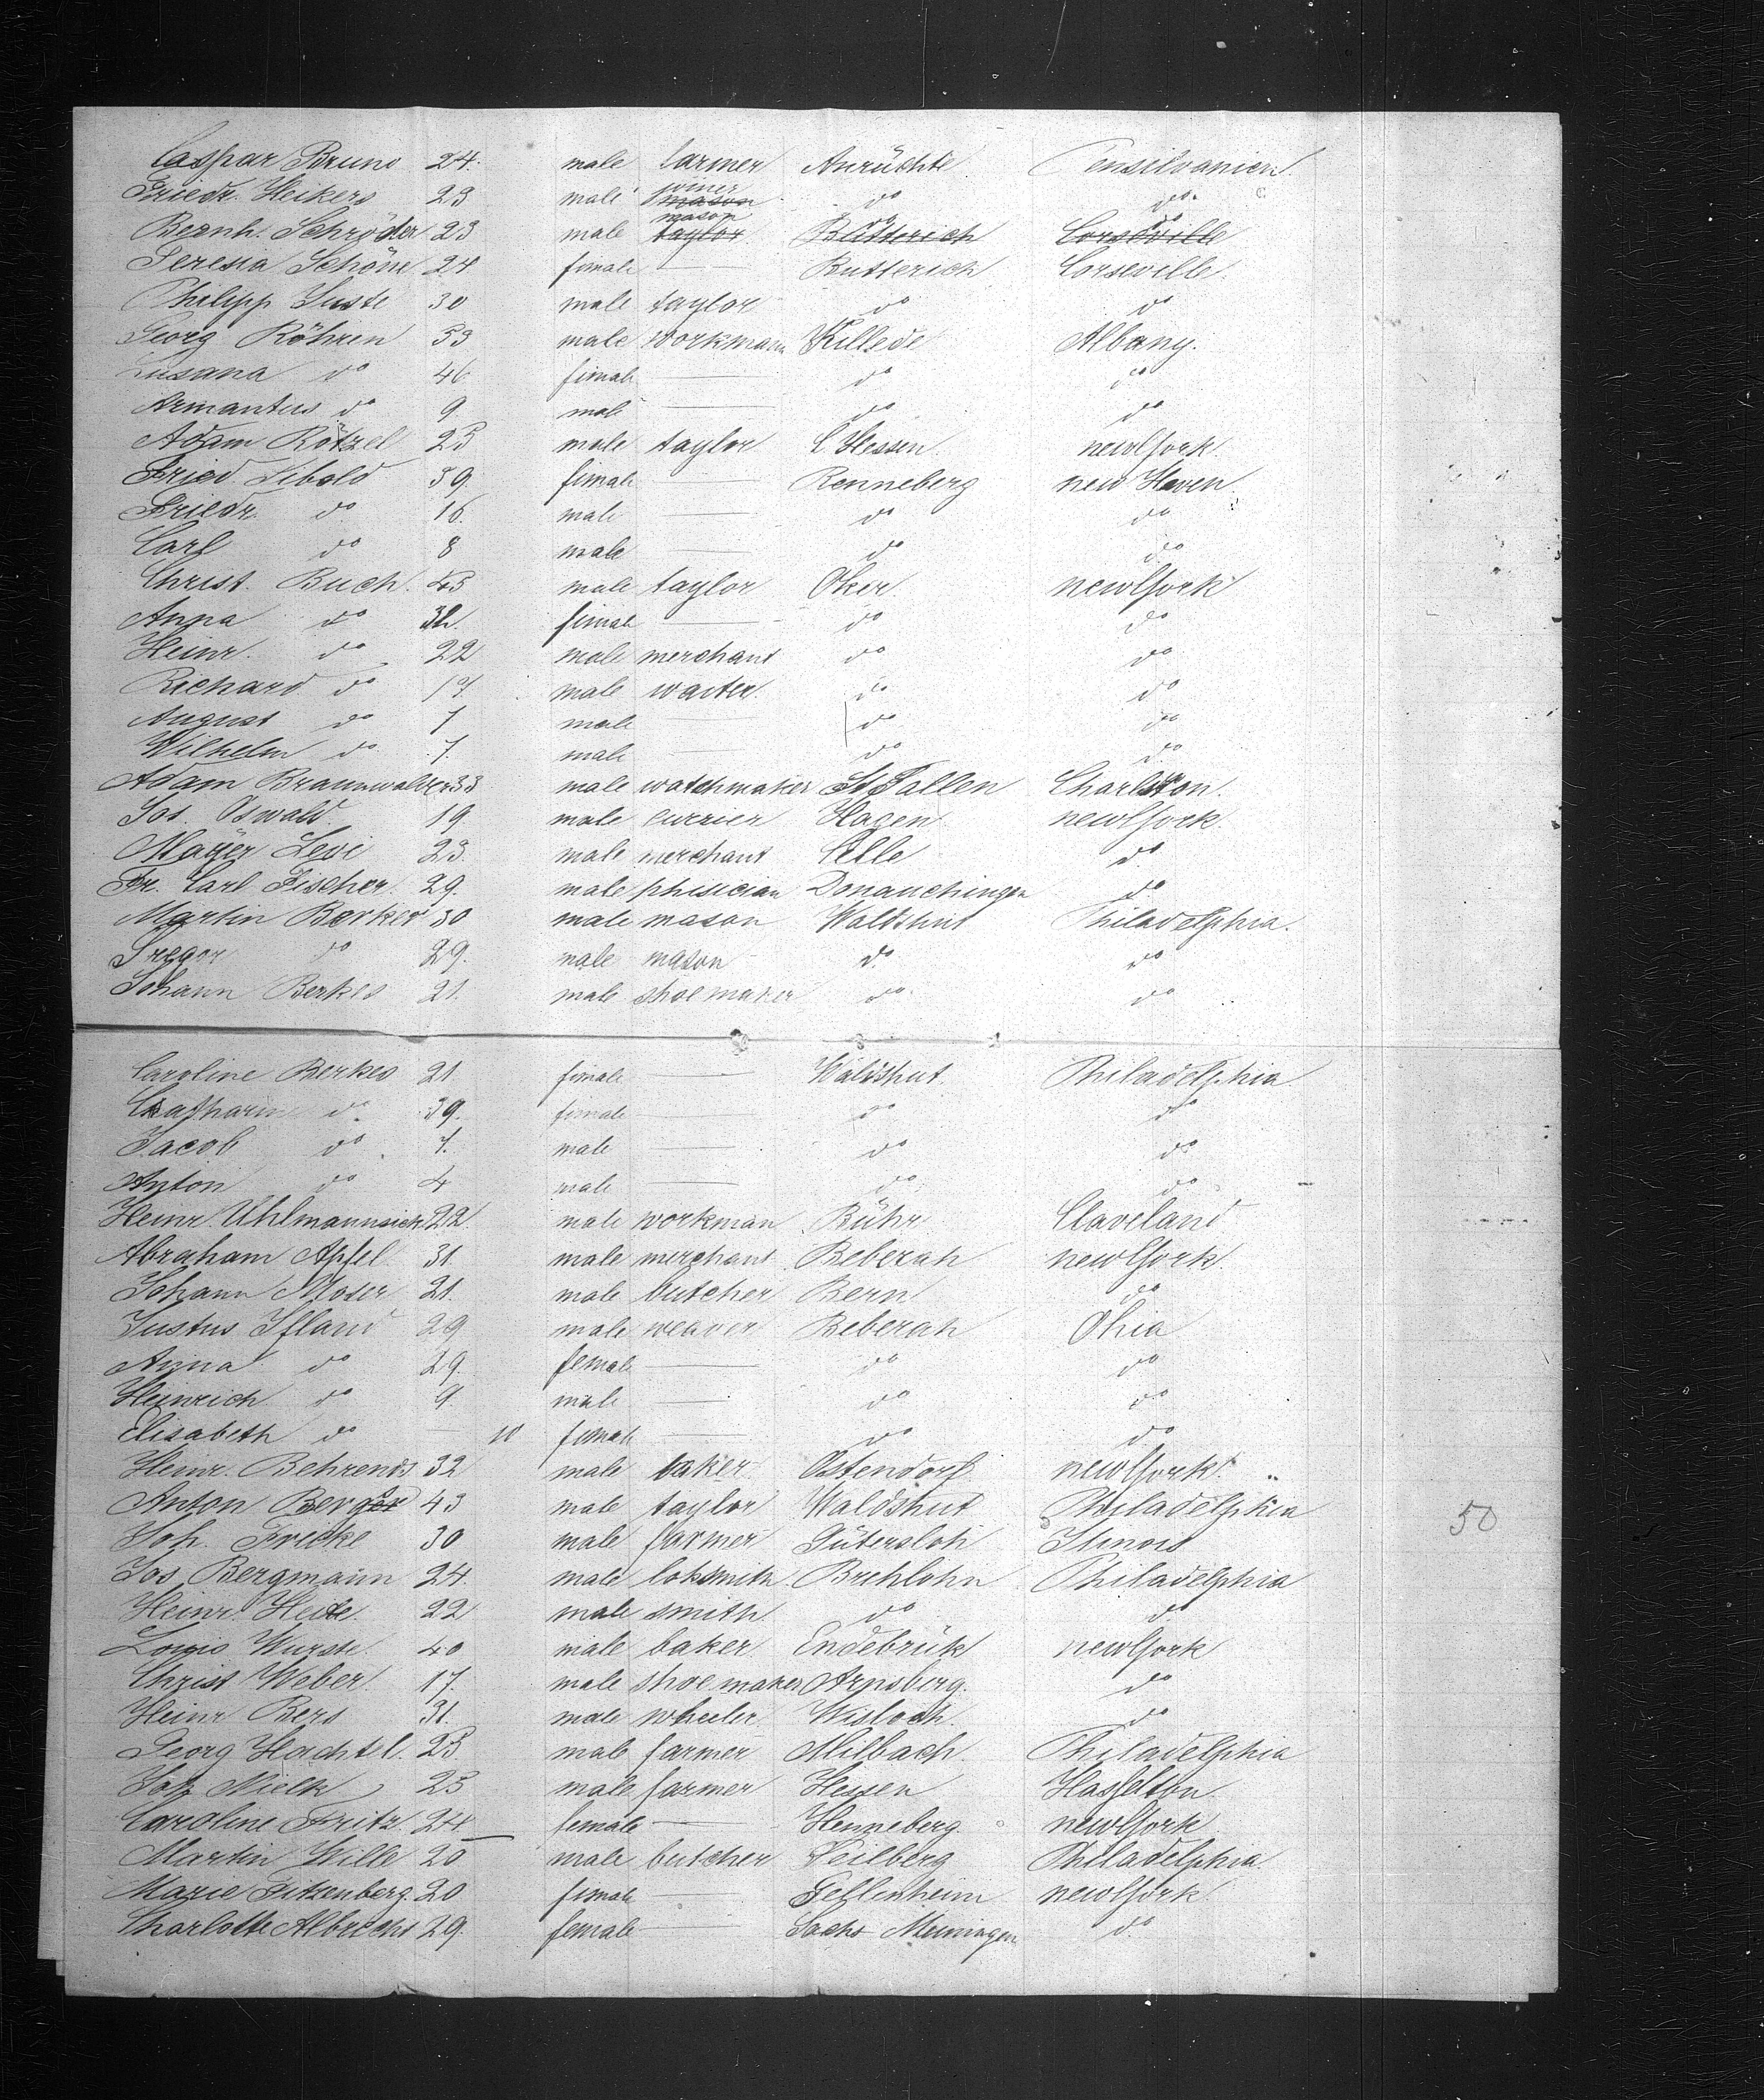 Caspar Bruno 24. male farmer Anrüchte Pensilvanien.
Friedr. Heikers 23 male joiner mason do do
Bernh. Schröder 23 male mason taylor do Butterich do Corseville
Teresia Schöne 24 fimale — Butterich Corseville.
Philipp Juste 30 male taylor do do
Georg Röhren 53 male workmann Willede Albany.
Susana do 46 fimale — do do
Armantus do 9 male — do do
Adam Rötzel 25 male taylor C Hessen. newYork
Fried. Sibold 39. fimale — Renneberg new Haven
Friedr. do 16. male — do do
Carl do 8 male — do do
Christ. Buch. 45 male taylor Oker newYork
Anna do fimale — do do
Heinr. do 22 male merchant do do
Richard do 17. male waiter. do do
August do 7 male — do do
Wilhelm do 7. male — do do
Adam Braunwalder 33 male watchmaker St Gallen Charlston.
Jos. Oswald 19 male currier Hagen newYork.
Mayer Levi 23. male merchant Celle do
Dr. Carl Fischer 29. male phisician Donauchingen do
Martin Berkes 30 male mason Waldshut Philadelphia.
Gregor do 29. male mason do do
Johann Berkes 21. male shoemaker do do
Caroline Berkes 21 fimale — Waldshut Philadelphia.
Chatharin do 39. fimale — do do
Jacob do 7. male — do do
Anton do 4 male — do do
Heinr. Uhlmannsiek 22 male workman Bühr Claveland
Abraham Apfel 31. male merchant Beberah newYork.
Johann Moser 21. male butcher Bern do
Justus Ifland 29 male weaver Beberah Ohia
Anna do 29. female — do do
Heinrich do 9 male — do do
Elisabeth do — 10 female — do do
Heinr. Behrends 32 male baker Ostendorf newYork. "
Anton Berger 43 male taylor Waldshut Philadelphia 50
Joh. Fricke 30 male farmer Gütersloh Ilinois
Jos. Bergmann 24. male loksmith Brehlohn Philadelphia
Heinr. Heite 22 male smith do do
Louis Wurste 40 male baker Endebrük newYork
Christ Weber. 17. male shoemaker Arnsberg. do
Heinr Bers 31. male wheeler Wisloch do
Georg Hachtel. 25 male farmer Milbach. Philadelphia
Joh Mielk 25 male farmer Hessen Hasselton.
Caroline Fritz. 24 female — Henneberg. newYork
Martin Wille 20 male butcher Heilberg Philadelphia.
Marie Fitzenberg. 20 fimale — Gellenheim newYork.
Charlotte Albrecht 29. female — Sachs Meiningen do